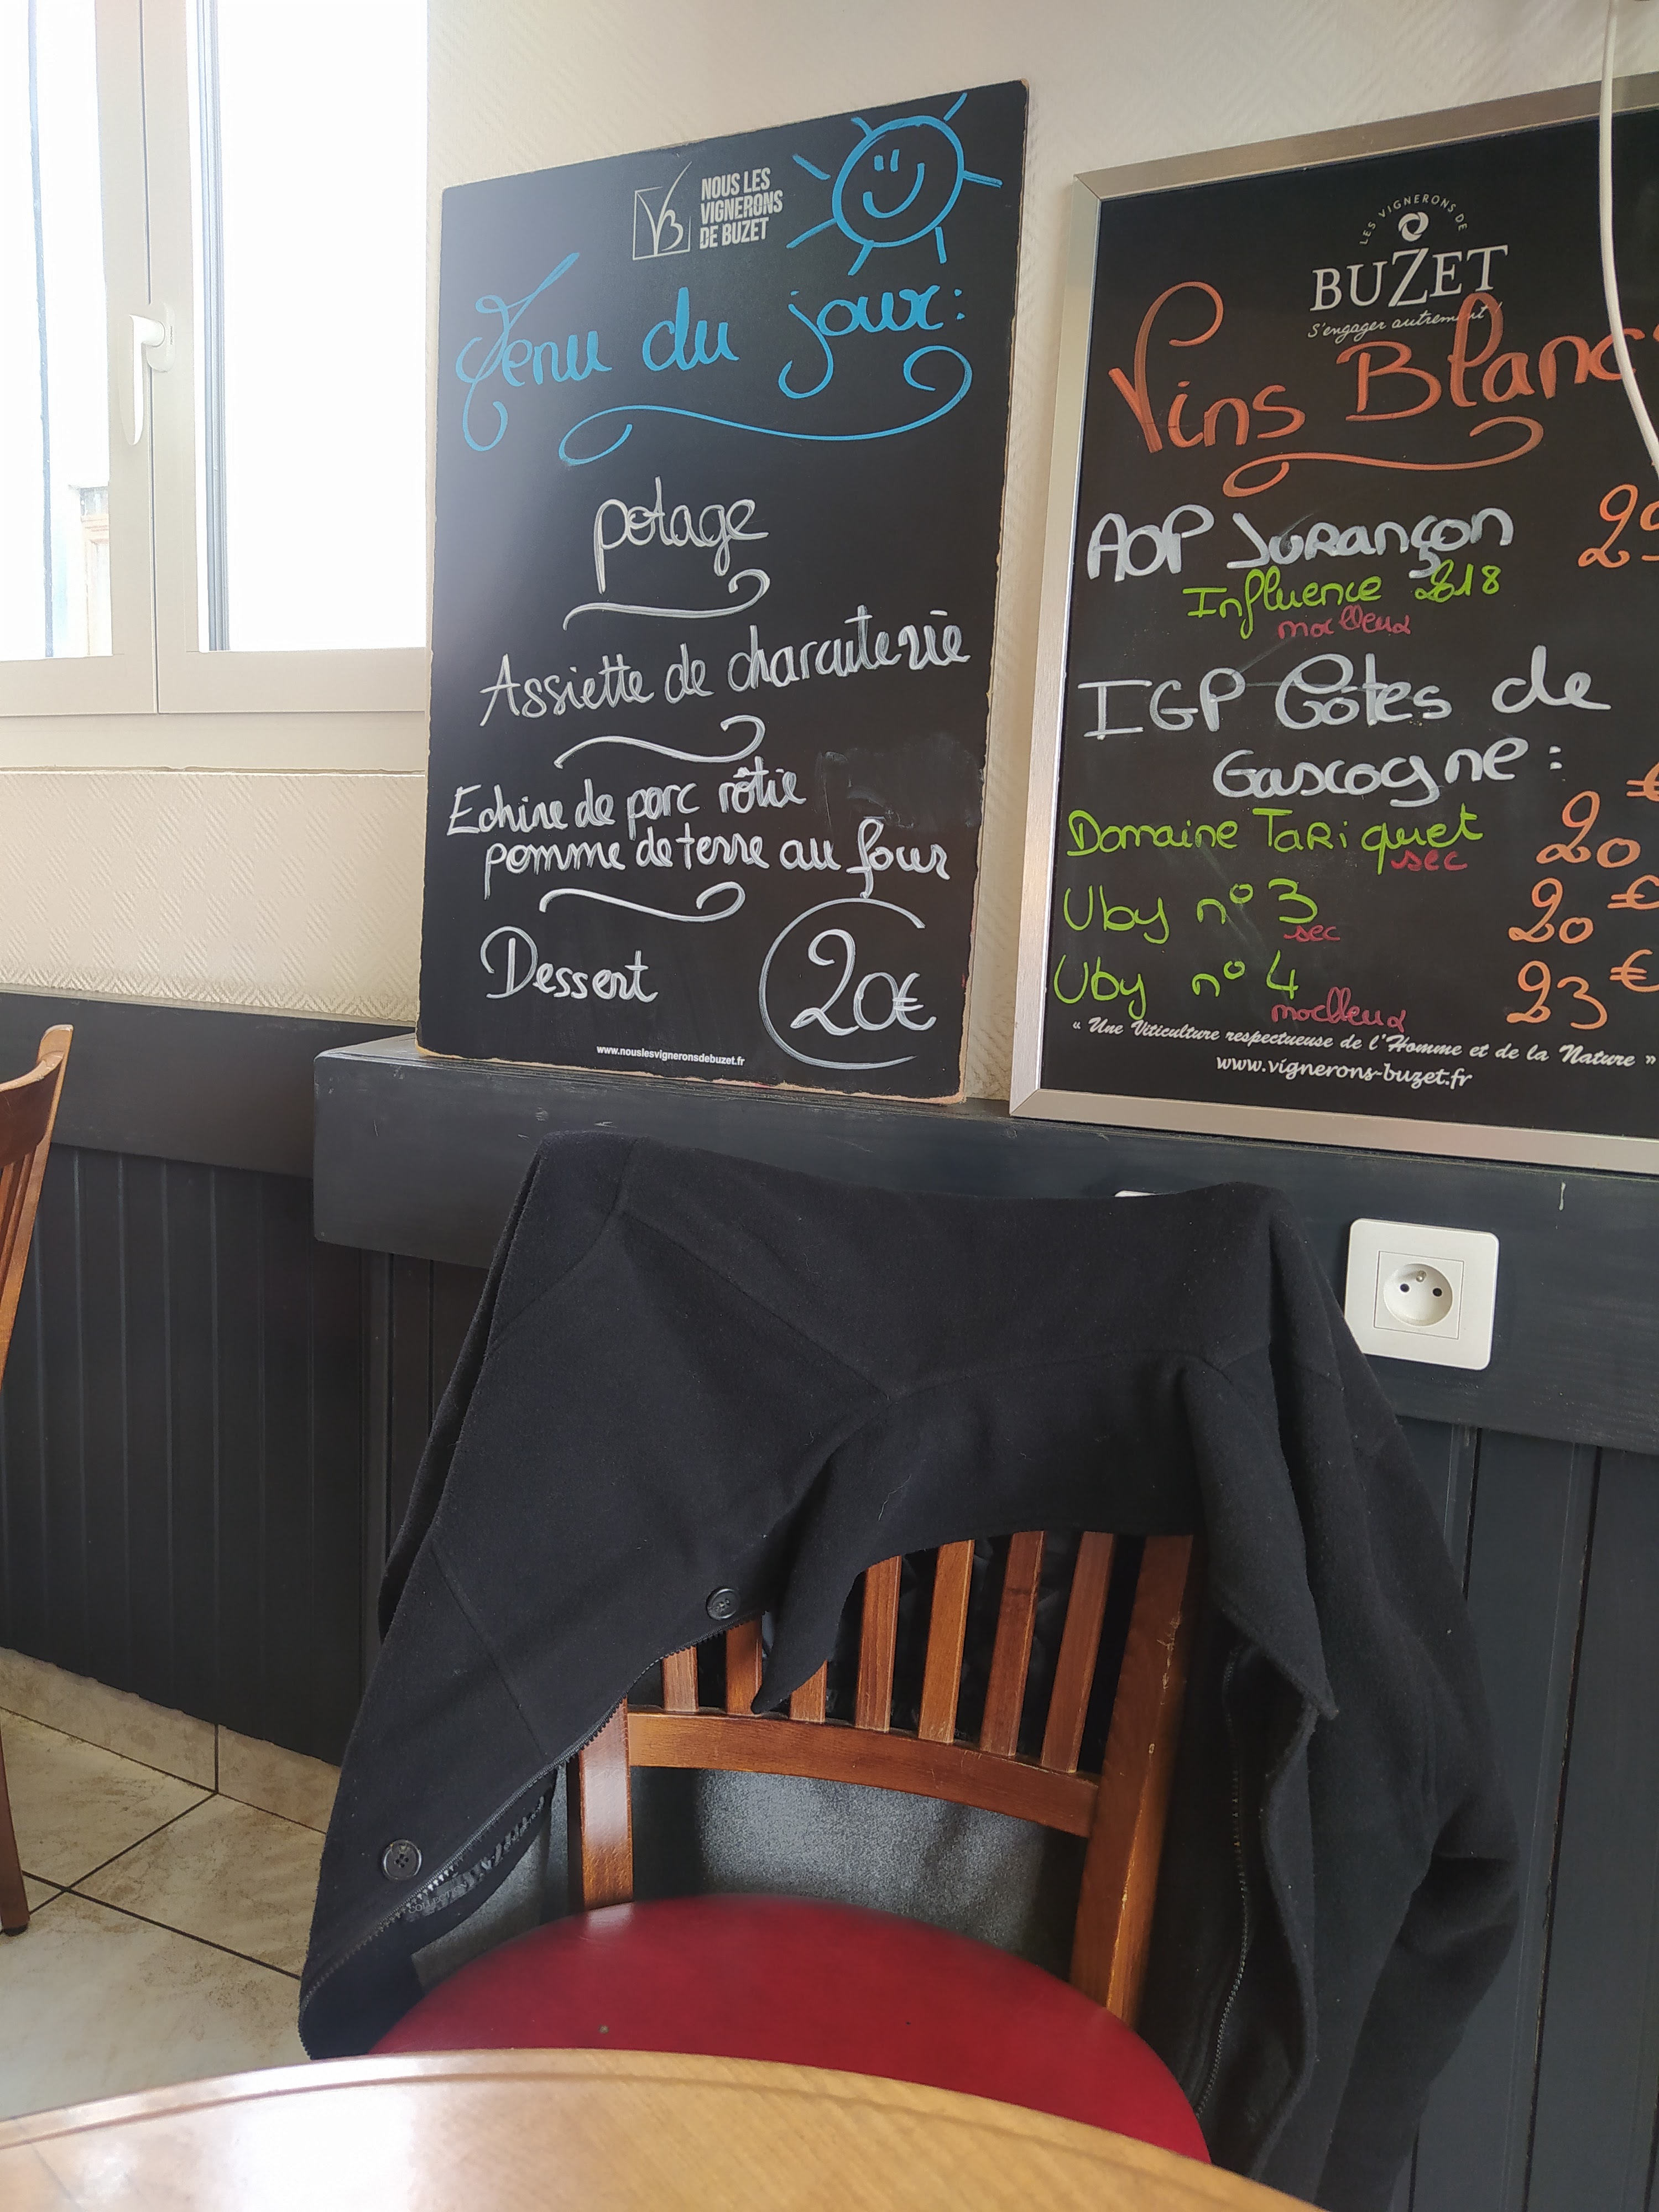 NOUS LES
VIGNERONS
DE BUZET
Menu du jour:
potage
Assiette de charcuterie
Echine de porc rôtie
pomme de terre au four
Dessert
20€
www.nouslesvigneronsdebuzet.fr
LES VIGNERONS DE
BUZET
S'engager autrement
Vins Blancs
AOP Jurançon
Influence 2018
moelleux
IGP Côtes de
Gascogne :
Domaine Tariquet 20€
sec
Uby n° 3 20€
sec
Uby n° 4 23€
moelleux
« Une Viticulture respectueuse de l'Homme et de la Nature »
www.vignerons-buzet.fr